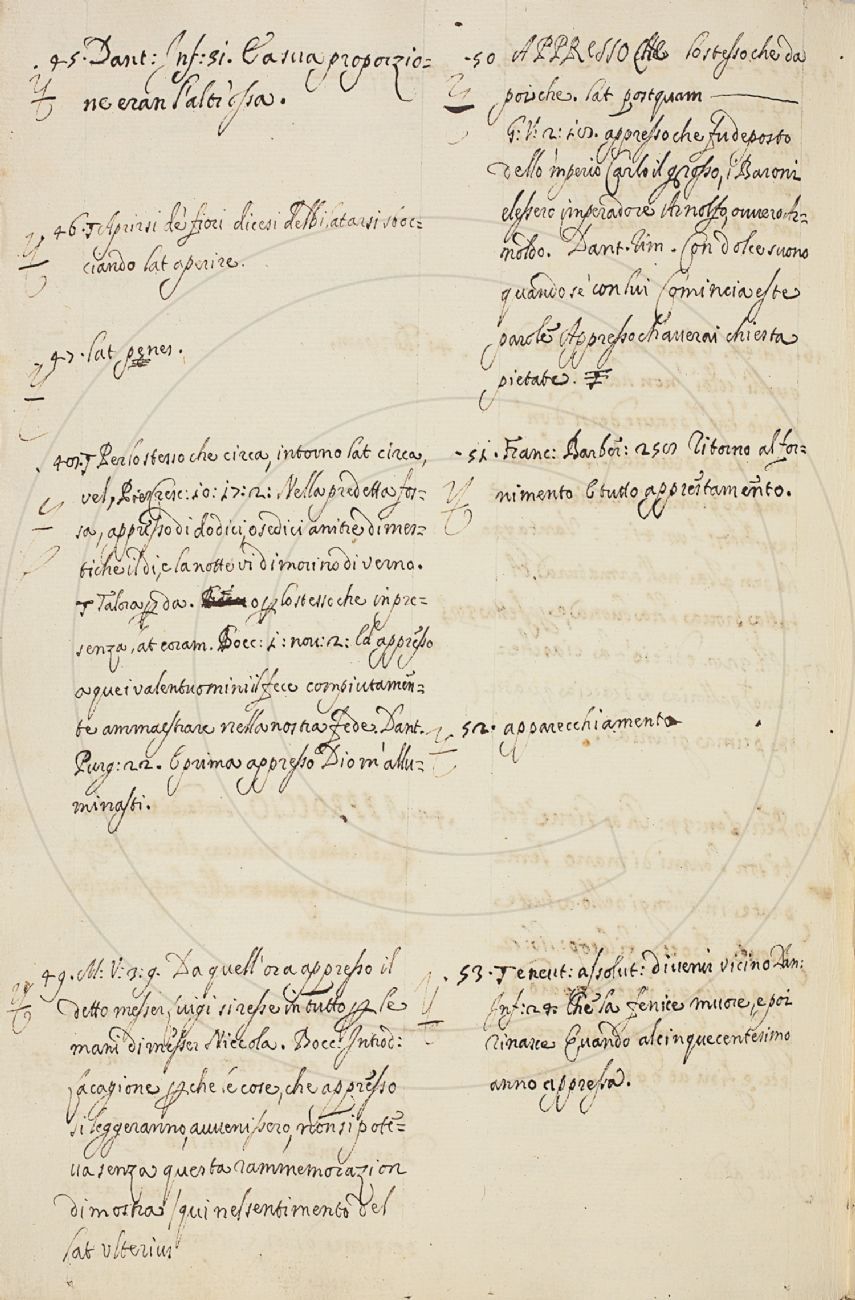 45. Dant: Inf: 31. E a sua proporzio=
ne eran l'altr'ossa.
46. Aprirsi de' fiori dicesi dello
ciando lat aperire.
47. lat penes.
48. Per lo stesso che circa, intorno lat circa,
vel, Cresc: 10: 17: 2: Nella predetta fos=
sa, appresso di dodici, o sedici anitre dimes=
tiche il dì, e la notte vi dimorino di verno.
Talora da. lo stesso che in pre=
senza, lat coram. Bocc: 1: nov: 2: Ed appresso
a quei valentuomini il fece compiutamen=
te ammaestrare nella nostra fede. Dant.
Purg: 22. E prima appresso Dio m'allu=
minasti.
49. M: V: 3: 9. Da quell'ora appresso il
detto messer Luigi si resse in tutto per le
mani di messer Niccola. Bocc: Introd:
la cagione per che le cose, che appresso
si leggeranno, avvenissero, non si pote=
va senza questa rammemorazion
dimostrar qui nel sentimento del
lat ulterius
50 APPRESSO CHE lo stesso che da
poi che. lat postquam
G: V: 2: appresso che fu deposto
dello 'mperio Carlo il grosso, i Baroni
elessero imperadore Arnolfo, ovvero Ar=
noldo. Dant. Rim. Con dolce suono
quando se' con lui Comincia este
parole Appresso ch'averai chiesta
pietate.
51. Franc: Barber: Ritorno al for=
nimento E tutto apprestamento.
52. apparecchiamento
53. neut: assolut: divenir vicino Dan:
Inf: 24: Che la fenice muore, e poi
rinasce Quando al cinquecentesimo
anno appressa.